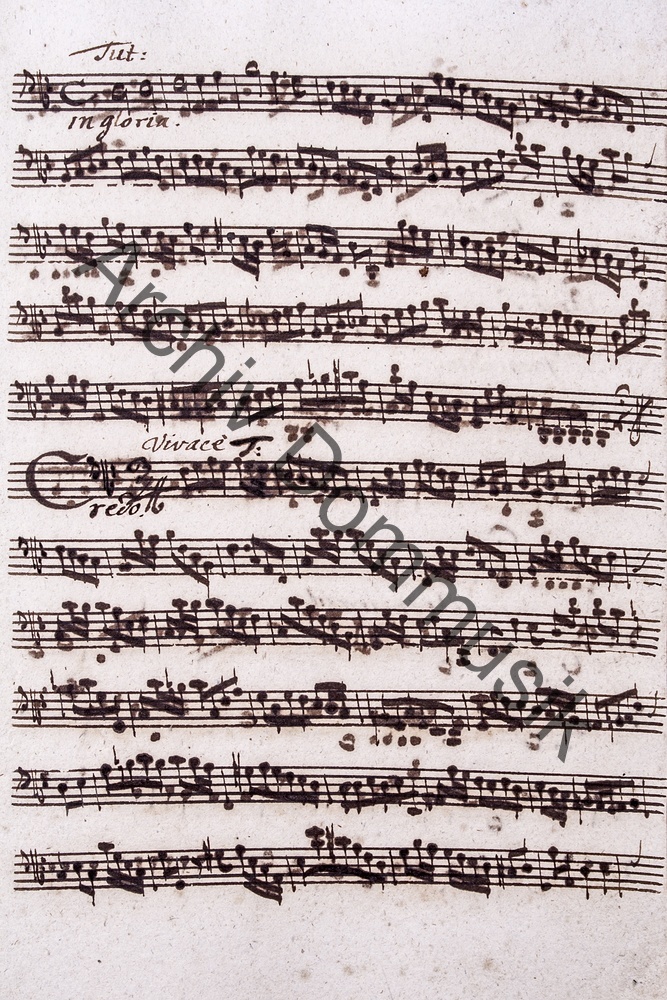 Tut:
in gloria.
Vivace T:
Credo.
Archiv Dommusik